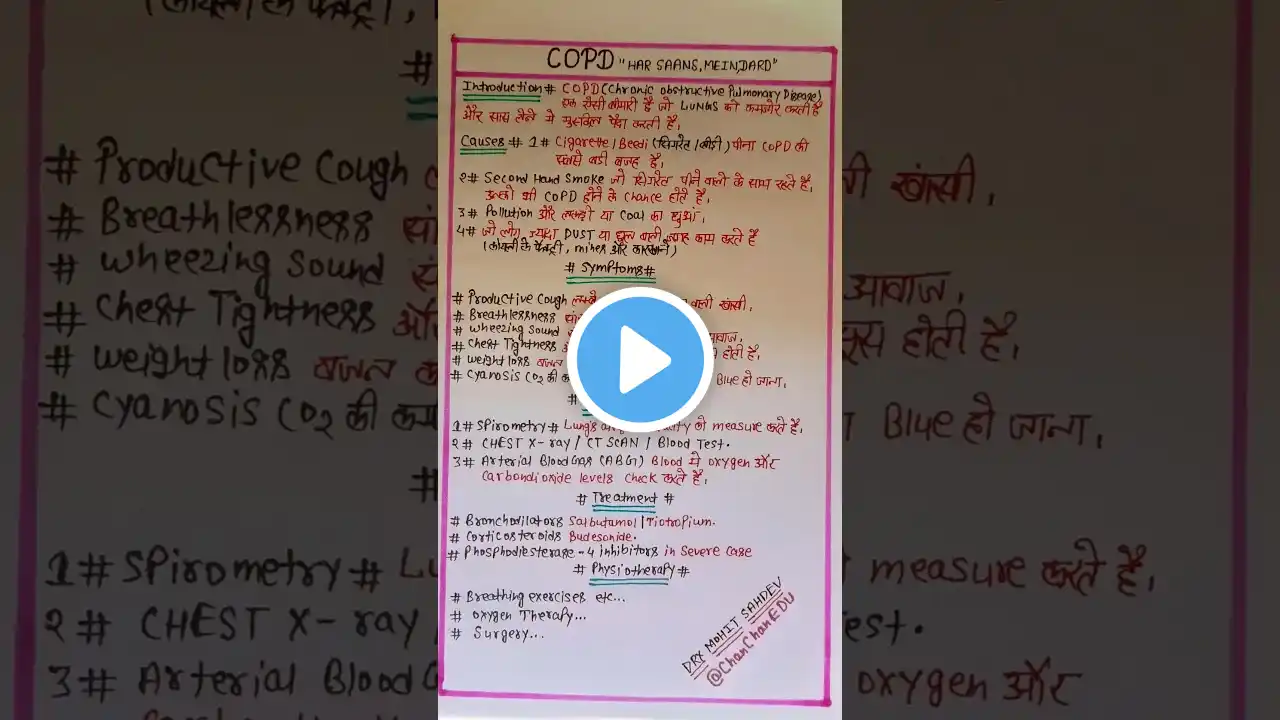 COPD "HAR SAANS, MEIN, DARD"
Introduction # COPD (Chronic obstructive Pulmonary Disease)
एक ऐसी बीमारी है जो LUNGS को कमजोर करती है
और सास लेने मे मुसकिल पैदा करती है।
Causes # 1 # Cigarette / Beedi (सिगरेट / बीडी) पीना COPD की
सबसे बडी वजह है।
2 # Second Hand Smoke जो सिगरेट पीने वालो के साथ रहते है,
उनको भी COPD होने के chance होते है,
3 # Pollution और लकडी या Coal का धुआ,
4 # जो लोग, ज्यादा DUST या धूल वाली जगह काम करते है
mines और कारखाने)
# Symptoms #
# Productive Cough वाली खांसी,
# Breathlessness
# Wheezing Sound आवाज,
# Chest Tightness होती है,
# Weight loss वजन
# Cyanosis CO2 की Blue हो जाना,
#
1 # SPirometry # Lungs को measure करते है,
2 # CHEST X-ray / CT SCAN / Blood Test.
3 # Arterial Blood Gas (ABG) Blood मे oxygen और
Carbondioxide levels check करते है,
# Treatment #
# Bronchodilators Salbutamol / Tiotropium.
# Corticosteroids Budesonide.
# Phosphodiesterase-4 inhibitors in Severe Case
# Physiotherapy #
# Breathing exercises etc...
# Oxygen Therapy...
# Surgery...
DRX MOHIT SAHDEV
@ChanChanEDU